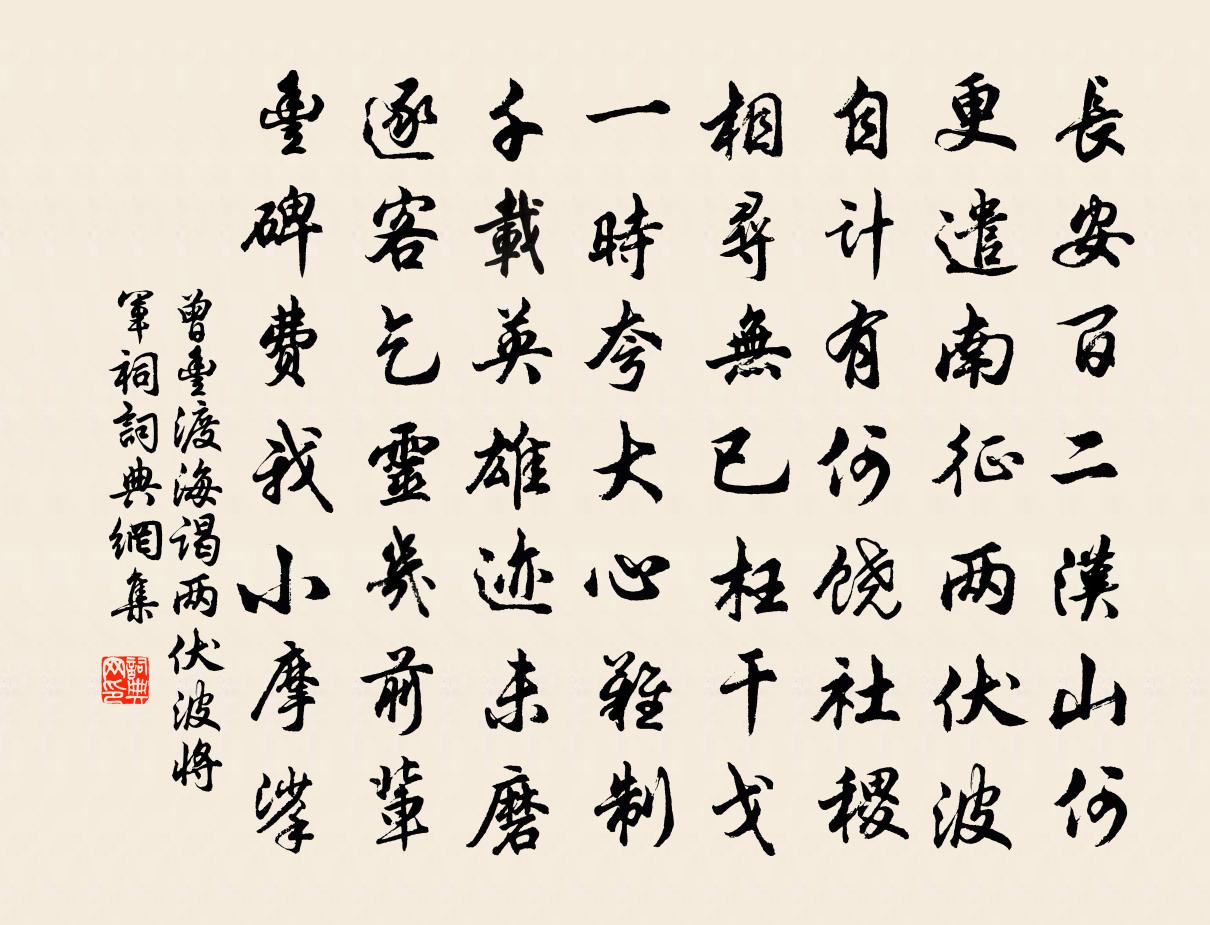 長安百二漢山何
更遣南征两伏波
自計有何饶社稷
相尋無已枉干戈
一時夸大心難制
千載英雄迹未磨
逐客乞靈幾前輩
豊碑費我小摩挲
曾豊渡海谒两伏波將
軍祠詞典網集
詞典
网印